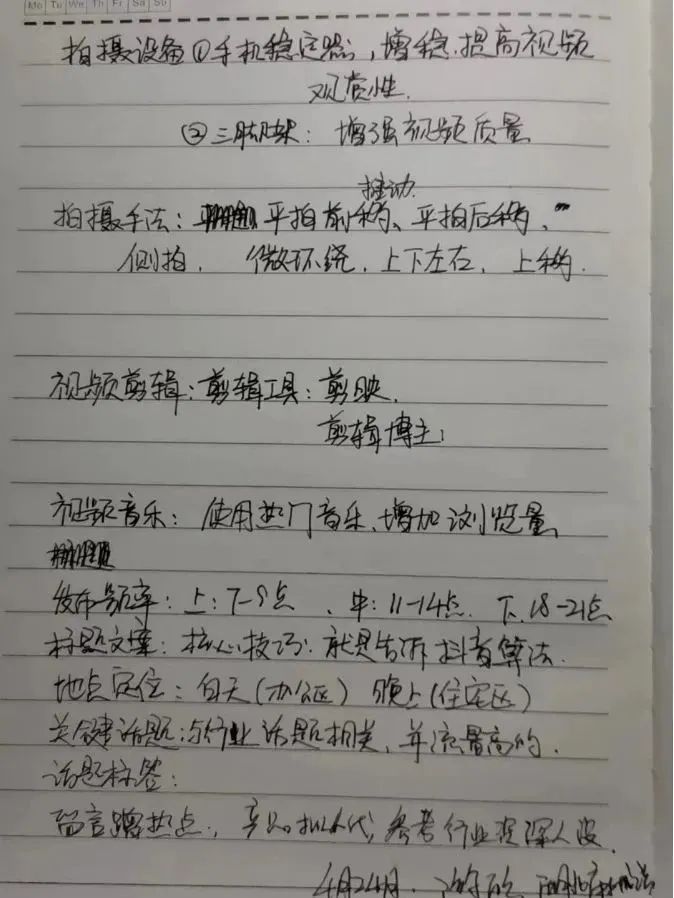 Mo Tu We Th Fr Sa Su
拍摄设备①手机稳定器，增稳.提高视频
观赏性.
②三脚架：增强视频质量
推动.
拍摄手法：平拍前移、平拍后移、
侧拍. 微环绕. 上下左右. 上移.
视频剪辑：剪辑工具：剪映.
剪辑博主：
视频音乐：使用热门音乐.增加浏览量
发布频率：上：7-9点、中：11-14点. 下.18-21点
标题文案：核心技巧.就是告诉抖音算法.
地点定位：白天(办公区) 晚上(住宅区)
关键话题：与行业话题相关,并流量高的.
话题标签：
留言蹭热点., 参考行业资深人设.
4月24